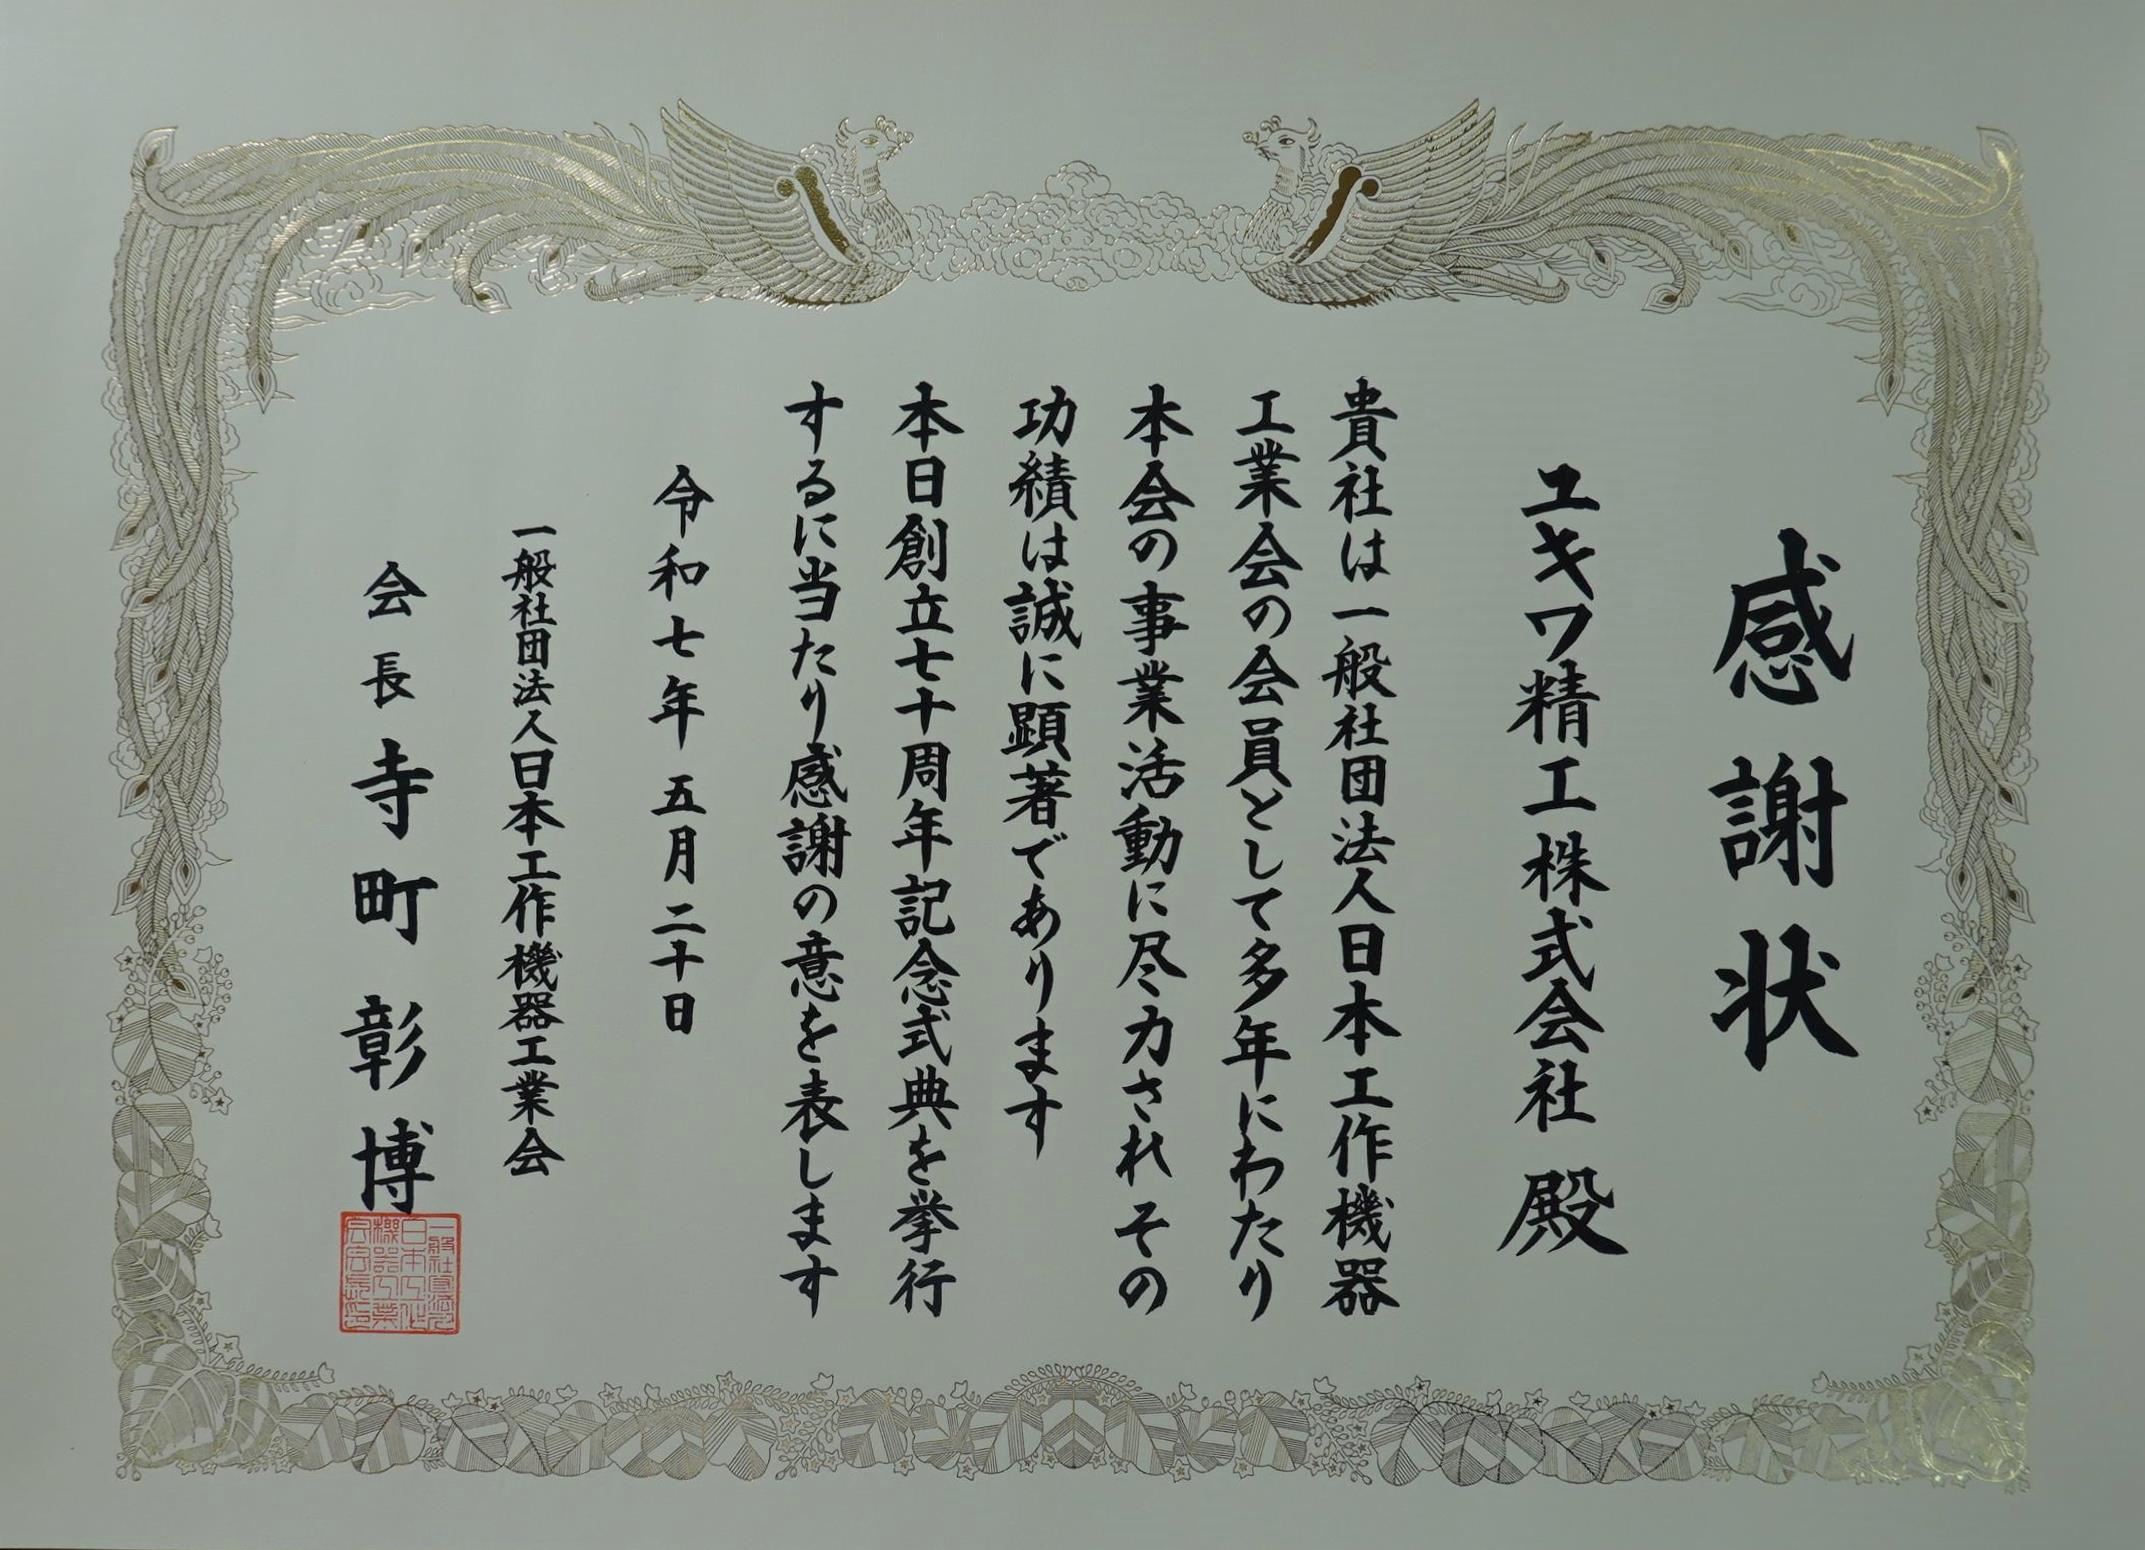 感謝状
ユキワ精工株式会社 殿
貴社は一般社団法人日本工作機器
工業会の会員として多年にわたり
本会の事業活動に尽力されその
功績は誠に顕著であります
本日創立七十周年記念式典を挙行
するに当たり感謝の意を表します
令和七年五月二十日
一般社団法人日本工作機器工業会
会長 寺町彰博
一般社団法人
日本工作
機器工業
会会長印